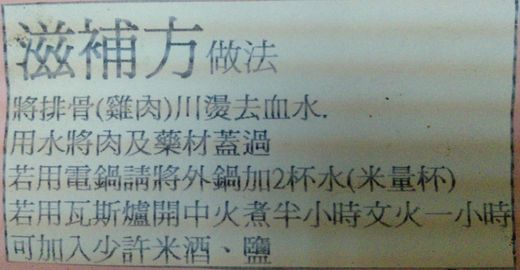 滋補方做法
將排骨(雞肉)川燙去血水.
用水將肉及藥材蓋過
若用電鍋請將外鍋加2杯水(米量杯)
若用瓦斯爐開中火煮半小時文火一小時
可加入少許米酒、鹽